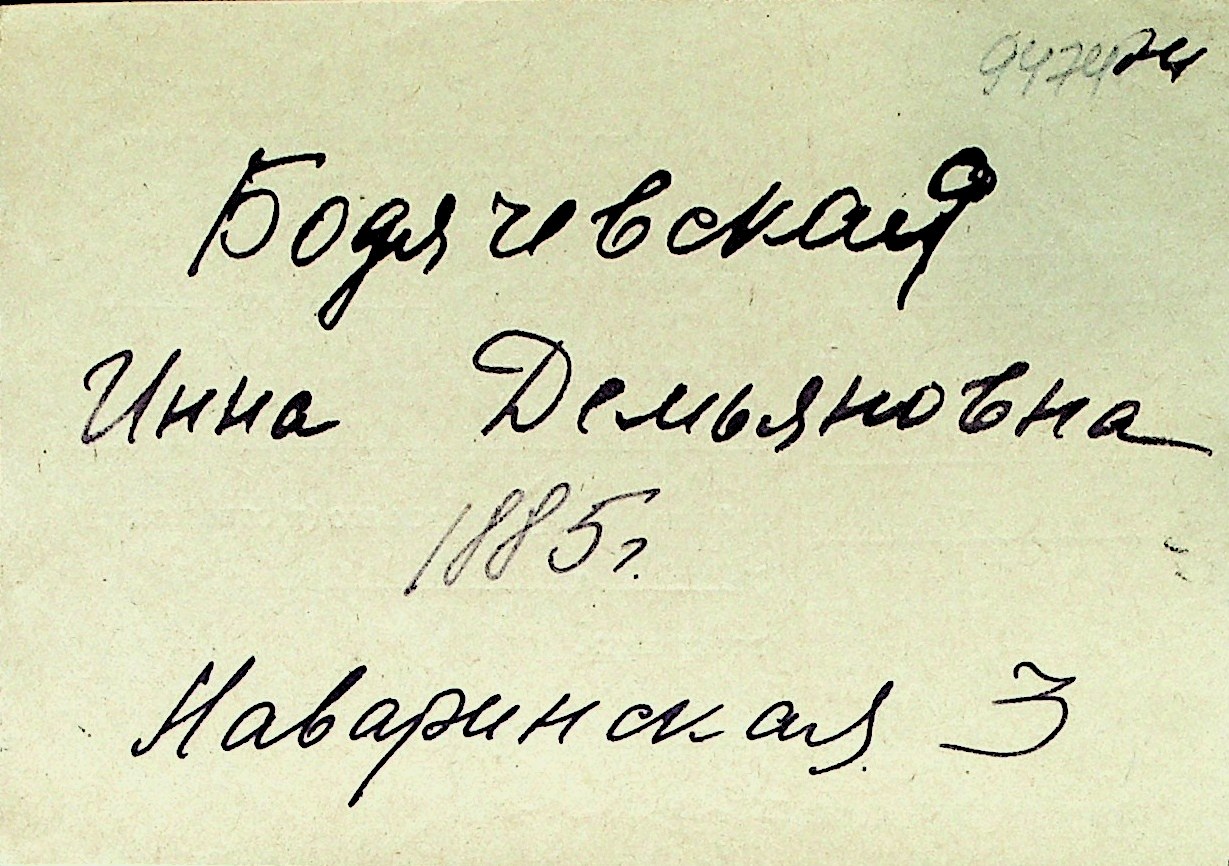 Бодячевская
Инна Демьяновна
1885г.
Наваринская 3